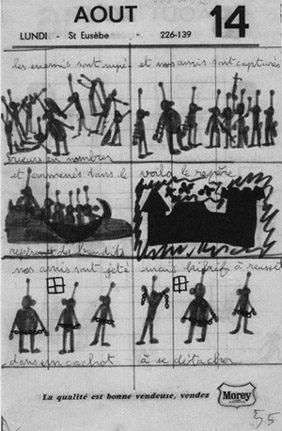 AOUT 14
LUNDI - St Eusèbe - 226-139
les ennemis sont supé
et nos amis sont capturés
rieurs en nombres
et emmenés dans le
voila le repère
repère des bandits
nos amis sont jeté
mais à reussit
dans un cachot
à se détacher
La qualité est bonne vendeuse, vendez Morey
55